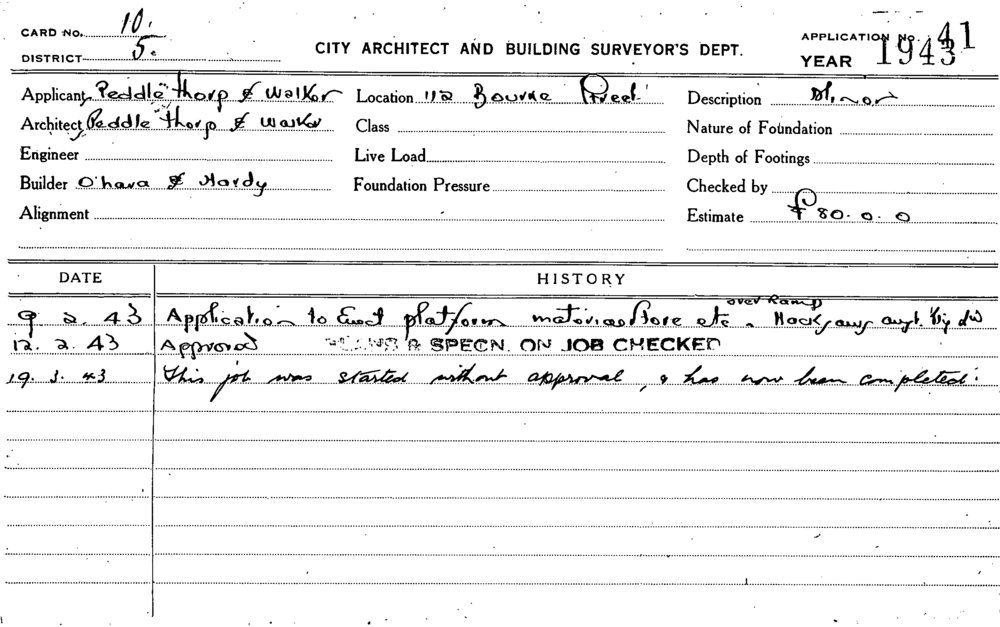 CARD NO. 10.
DISTRICT 5.
CITY ARCHITECT AND BUILDING SURVEYOR'S DEPT.
APPLICATION No. 41
YEAR 1943
Applicant Peddle Thorp & Walker
Architect Peddle Thorp & Walker
Engineer
Builder O'hara & Hardy
Alignment
Location 112 Bourke Street
Class
Live Load
Foundation Pressure
Description Minor
Nature of Foundation
Depth of Footings
Checked by
Estimate £80.0.0
DATE HISTORY
over Ramp
9 2. 43 Application to Erect platform materials store etc
12. 2. 43 Approved PLANS & SPECN. ON JOB CHECKED
19. 3. 43 This job was started without approval, & has now been completed.